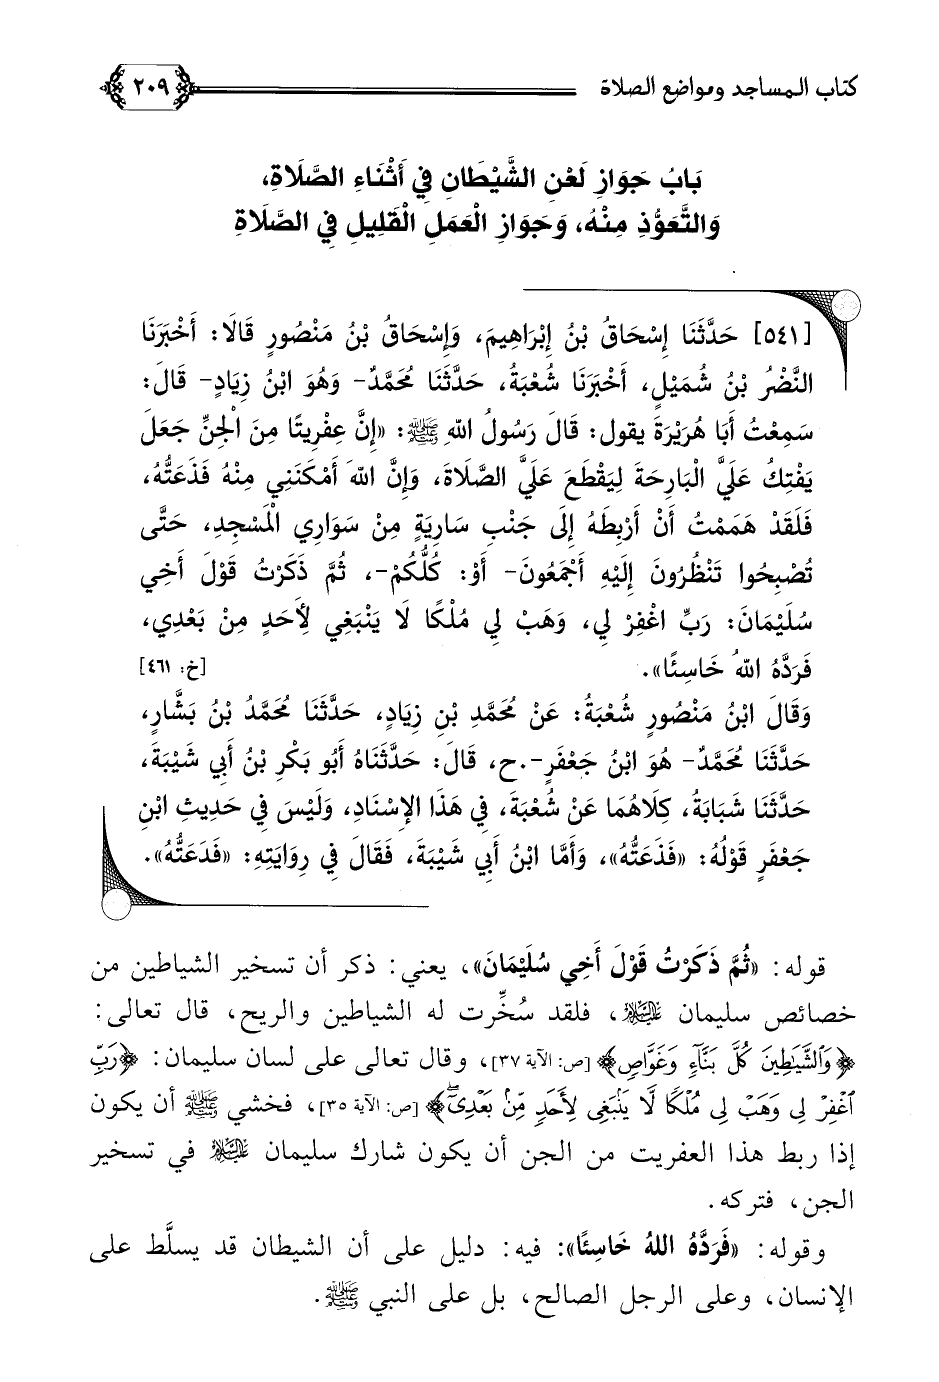 كتاب المساجد ومواضع الصلاة
٢٠٩
بَابُ جَوَازِ لَعْنِ الشَّيْطَانِ فِي أَثْنَاءِ الصَّلَاةِ،
وَالتَّعَوُّذِ مِنْهُ، وَجَوَازِ الْعَمَلِ الْقَلِيلِ فِي الصَّلَاةِ
[٥٤١] حَدَّثَنَا إِسْحَاقُ بْنُ إِبْرَاهِيمَ، وَإِسْحَاقُ بْنُ مَنْصُورٍ قَالَا: أَخْبَرَنَا
النَّضْرُ بْنُ شُمَيْلٍ، أَخْبَرَنَا شُعْبَةُ، حَدَّثَنَا مُحَمَّدٌ- وَهُوَ ابْنُ زِيَادٍ- قَالَ:
سَمِعْتُ أَبَا هُرَيْرَةَ يقول: قَالَ رَسُولُ اللهِ ﷺ: «إِنَّ عِفْرِيتًا مِنَ الْجِنِّ جَعَلَ
يَفْتِكُ عَلَيَّ الْبَارِحَةَ لِيَقْطَعَ عَلَيَّ الصَّلَاةَ، وَإِنَّ اللهَ أَمْكَنَنِي مِنْهُ فَذَعَتُّهُ،
فَلَقَدْ هَمَمْتُ أَنْ أَرْبِطَهُ إِلَى جَنْبِ سَارِيَةٍ مِنْ سَوَارِي الْمَسْجِدِ، حَتَّى
تُصْبِحُوا تَنْظُرُونَ إِلَيْهِ أَجْمَعُونَ- أَوْ: كُلُّكُمْ-، ثُمَّ ذَكَرْتُ قَوْلَ أَخِي
سُلَيْمَانَ: رَبِّ اغْفِرْ لِي، وَهَبْ لِي مُلْكًا لَا يَنْبَغِي لِأَحَدٍ مِنْ بَعْدِي،
فَرَدَّهُ اللهُ خَاسِئًا». [خ: ٤٦١]
وَقَالَ ابْنُ مَنْصُورٍ شُعْبَةُ: عَنْ مُحَمَّدِ بْنِ زِيَادٍ، حَدَّثَنَا مُحَمَّدُ بْنُ بَشَّارٍ،
حَدَّثَنَا مُحَمَّدٌ- هُوَ ابْنُ جَعْفَرٍ-.ح، قَالَ: حَدَّثَنَاهُ أَبُو بَكْرِ بْنُ أَبِي شَيْبَةَ،
حَدَّثَنَا شَبَابَةُ، كِلَاهُمَا عَنْ شُعْبَةَ، فِي هَذَا الإِسْنَادِ، وَلَيْسَ فِي حَدِيثِ ابْنِ
جَعْفَرٍ قَوْلُهُ: «فَذَعَتُّهُ»، وَأَمَّا ابْنُ أَبِي شَيْبَةَ، فَقَالَ فِي رِوَايَتِهِ: «فَدَعَتُّهُ».
قوله: «ثُمَّ ذَكَرْتُ قَوْلَ أَخِي سُلَيْمَانَ»، يعني: ذكر أن تسخير الشياطين من
خصائص سليمان عليه السلام، فلقد سُخِّرت له الشياطين والريح، قال تعالى:
﴿وَالشَّيَاطِينَ كُلَّ بَنَّاءٍ وَغَوَّاصٍ﴾ [ص: الآية ٣٧]، وقال تعالى على لسان سليمان: ﴿رَبِّ
ٱغْفِرْ لِى وَهَبْ لِى مُلْكًا لَّا يَنۢبَغِى لِأَحَدٍ مِّنۢ بَعْدِىٓ﴾ [ص: الآية ٣٥]، فخشي ﷺ أن يكون
إذا ربط هذا العفريت من الجن أن يكون شارك سليمان عليه السلام في تسخير
الجن، فتركه.
وقوله: «فَرَدَّهُ اللهُ خَاسِئًا»: فيه: دليل على أن الشيطان قد يسلَّط على
الإنسان، وعلى الرجل الصالح، بل على النبي ﷺ.